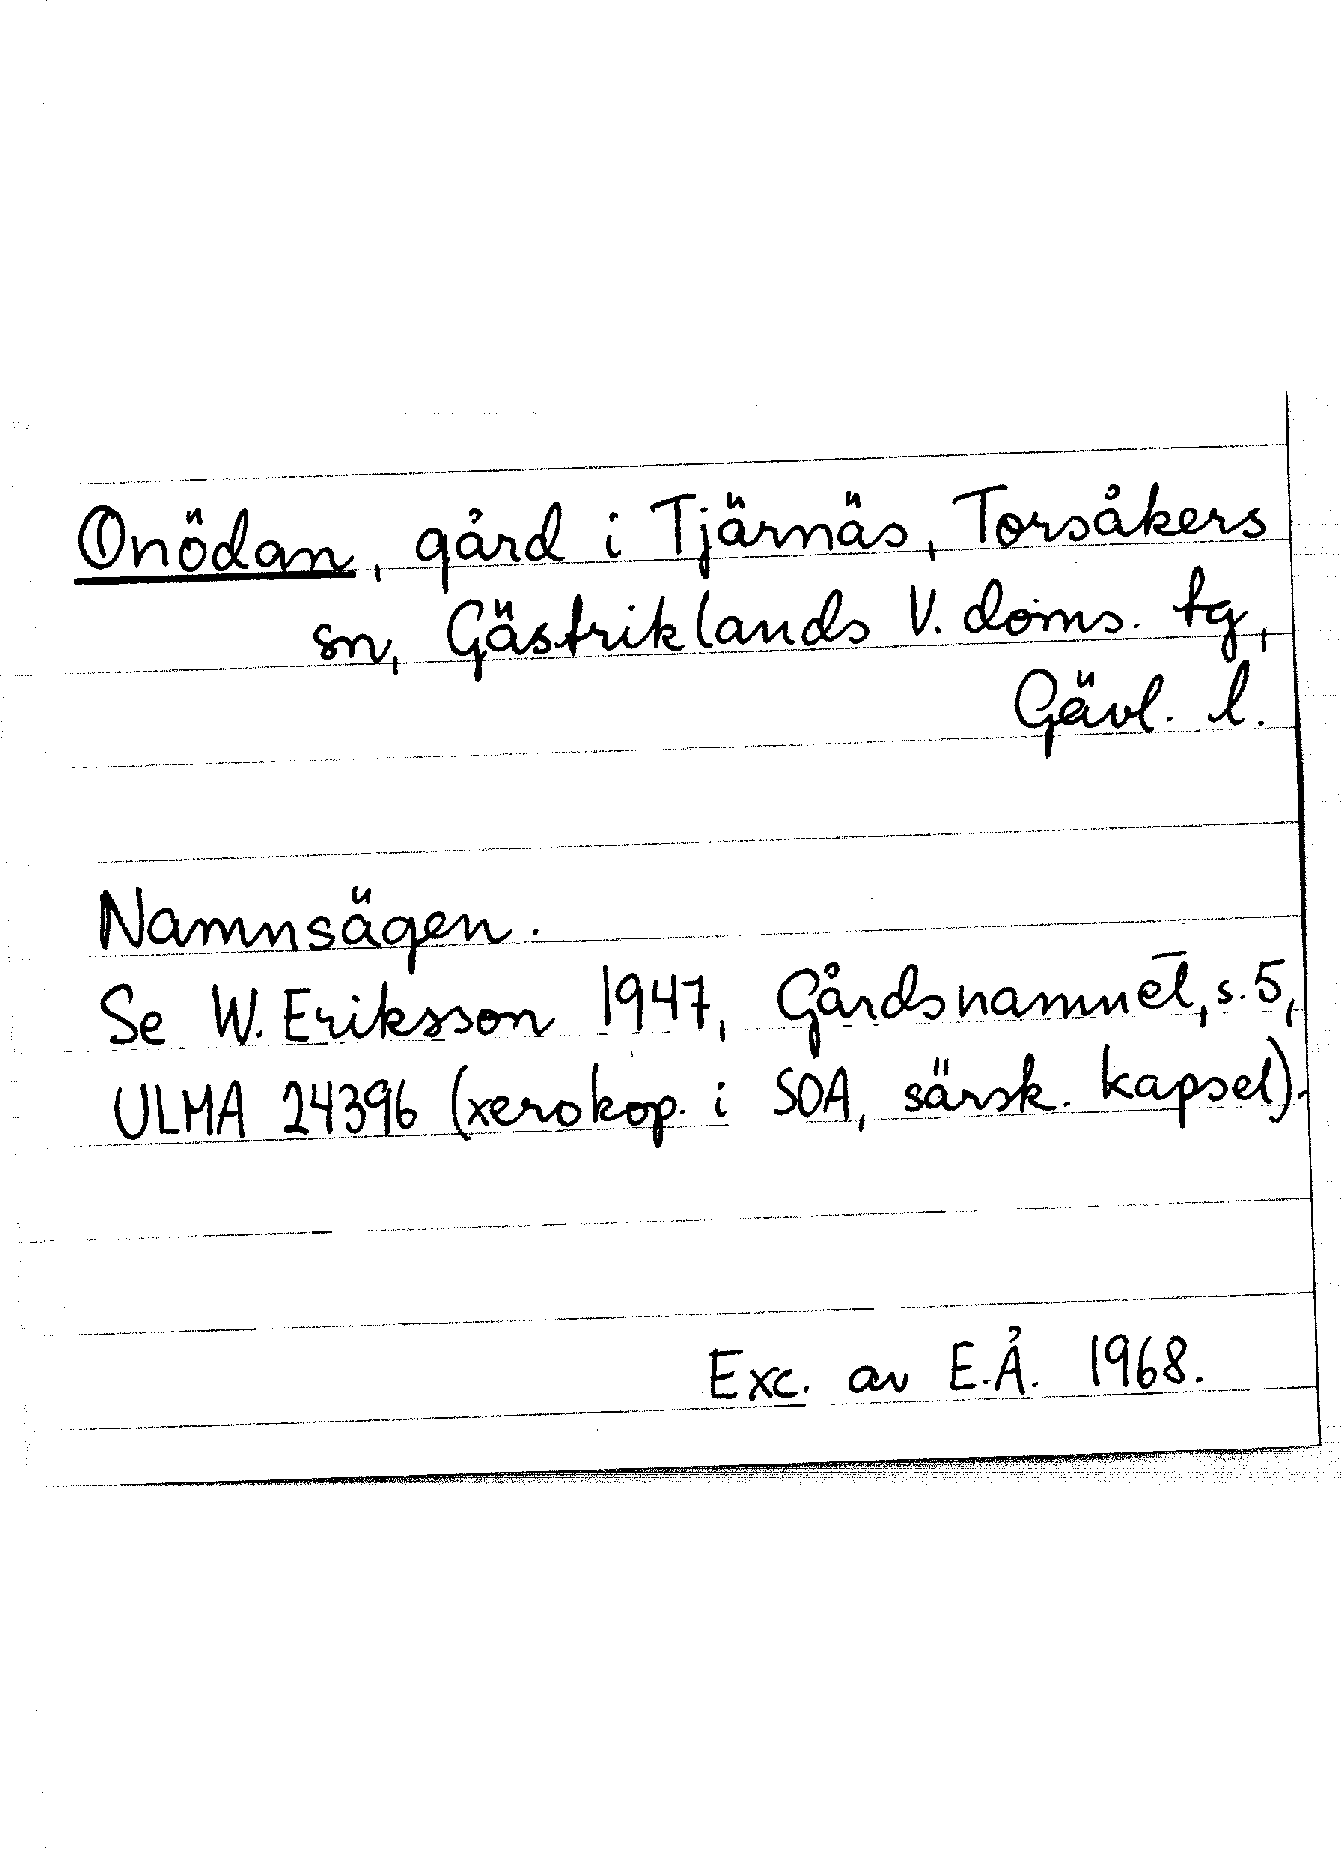 Onödan, gård i Tjärnäs, Torsåkers
sn, Gästriklands V. doms. tg,
Gävl. l.
Namnsägen.
Se W. Eriksson 1947, Gårdsnamnet, s. 5,
ULMA 24396 (xerokop. i SOA, särsk. kapsel).
Exc. av E.Å. 1968.